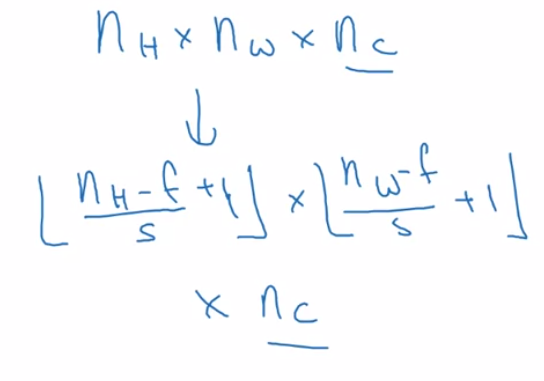 n_H × n_W × n_C
↓
⌊(n_H − f)/s + 1⌋ × ⌊(n_W − f)/s + 1⌋
× n_C